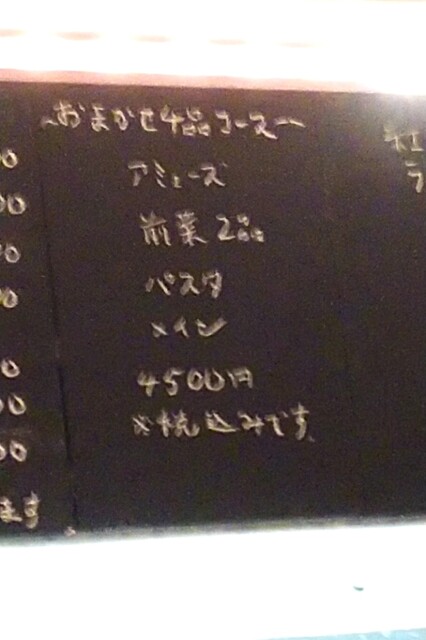 〜おまかせ4品コース〜
アミューズ
前菜2品
パスタ
メイン
4500円
※税込みです。
00
00
00
00
00
00
00
ます